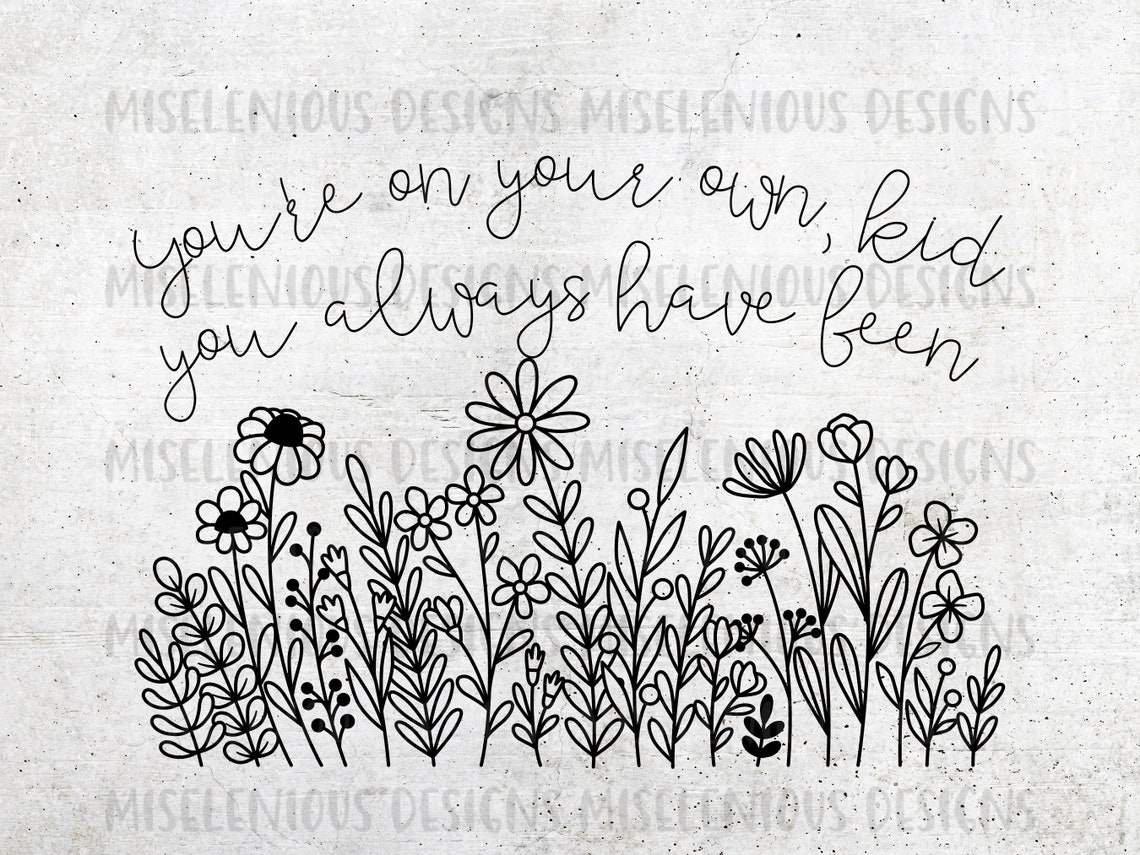 MISELENIOUS DESIGNS MISELENIOUS DESIGNS
you're on your own, kid
MISELENIOUS DESIGNS MISELENIOUS DESIGNS
you always have been
MISELENIOUS DESIGNS MISELENIOUS DESIGNS
MISELENIOUS DESIGNS MISELENIOUS DESIGNS
MISELENIOUS DESIGNS MISELENIOUS DESIGNS